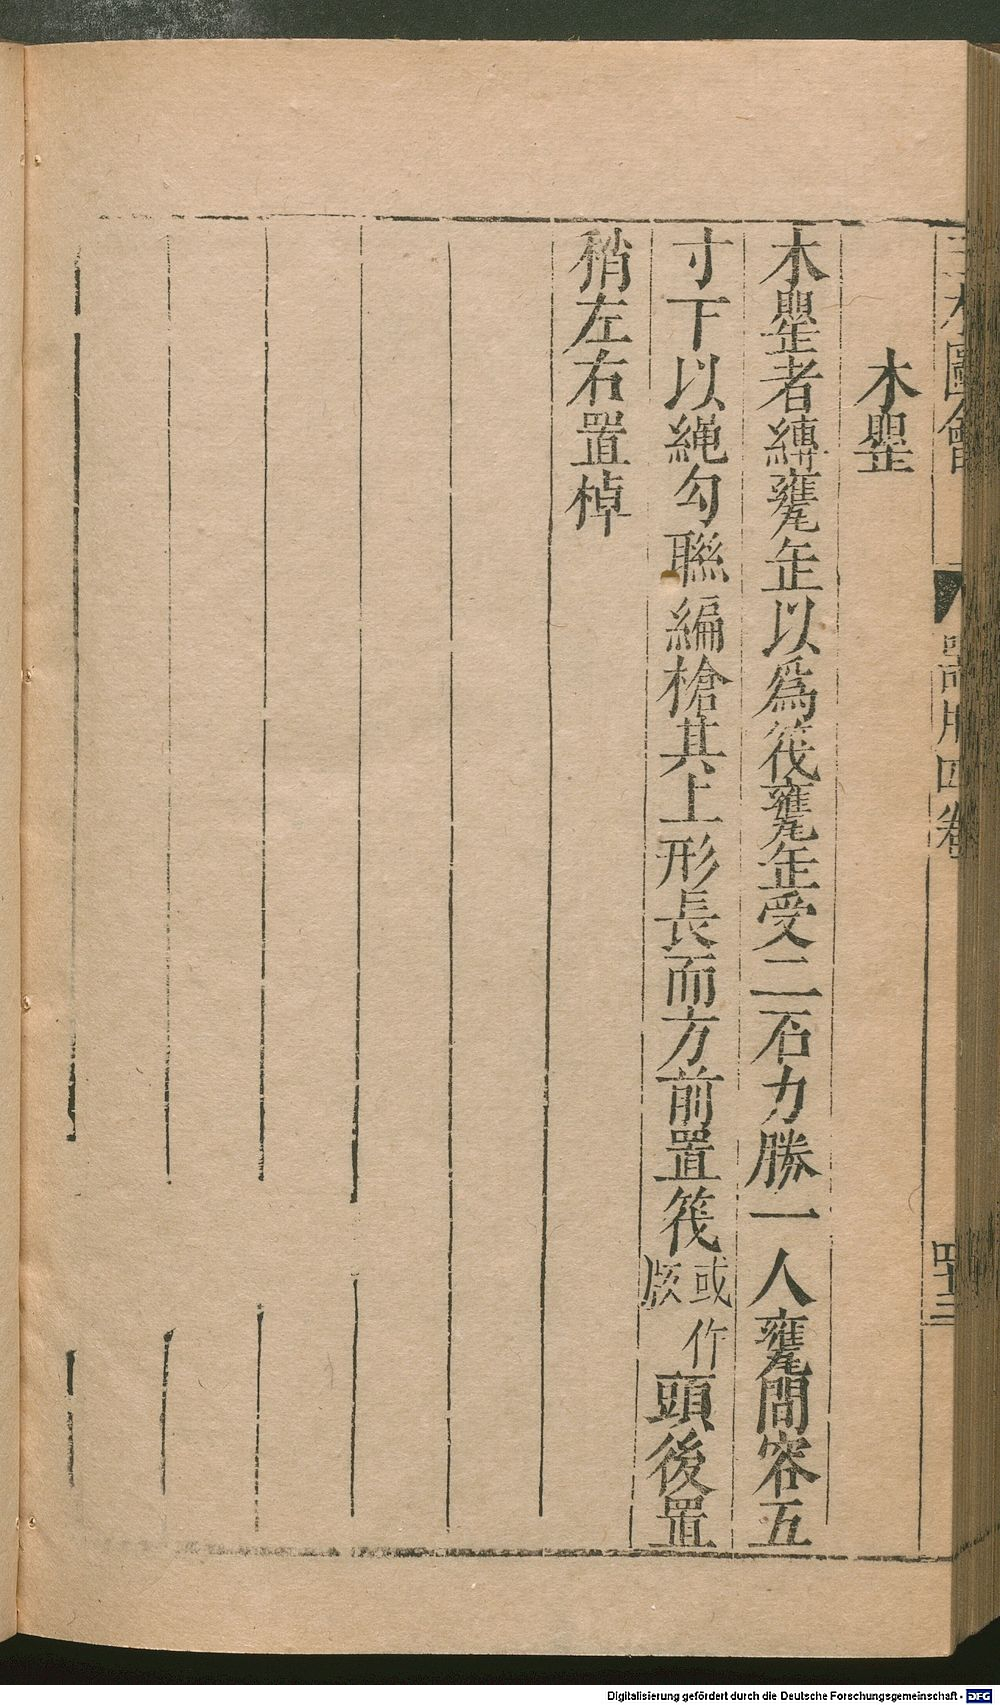 三才圖會
器用四卷
四十三
木罌
木罌者縳甕缶以爲筏甕缶受二石力勝一人甕間容五
寸下以繩勾聯編槍其上形長而方前置筏或作版頭後置
稍左右置棹
Digitalisierung gefördert durch die Deutsche Forschungsgemeinschaft - DFG